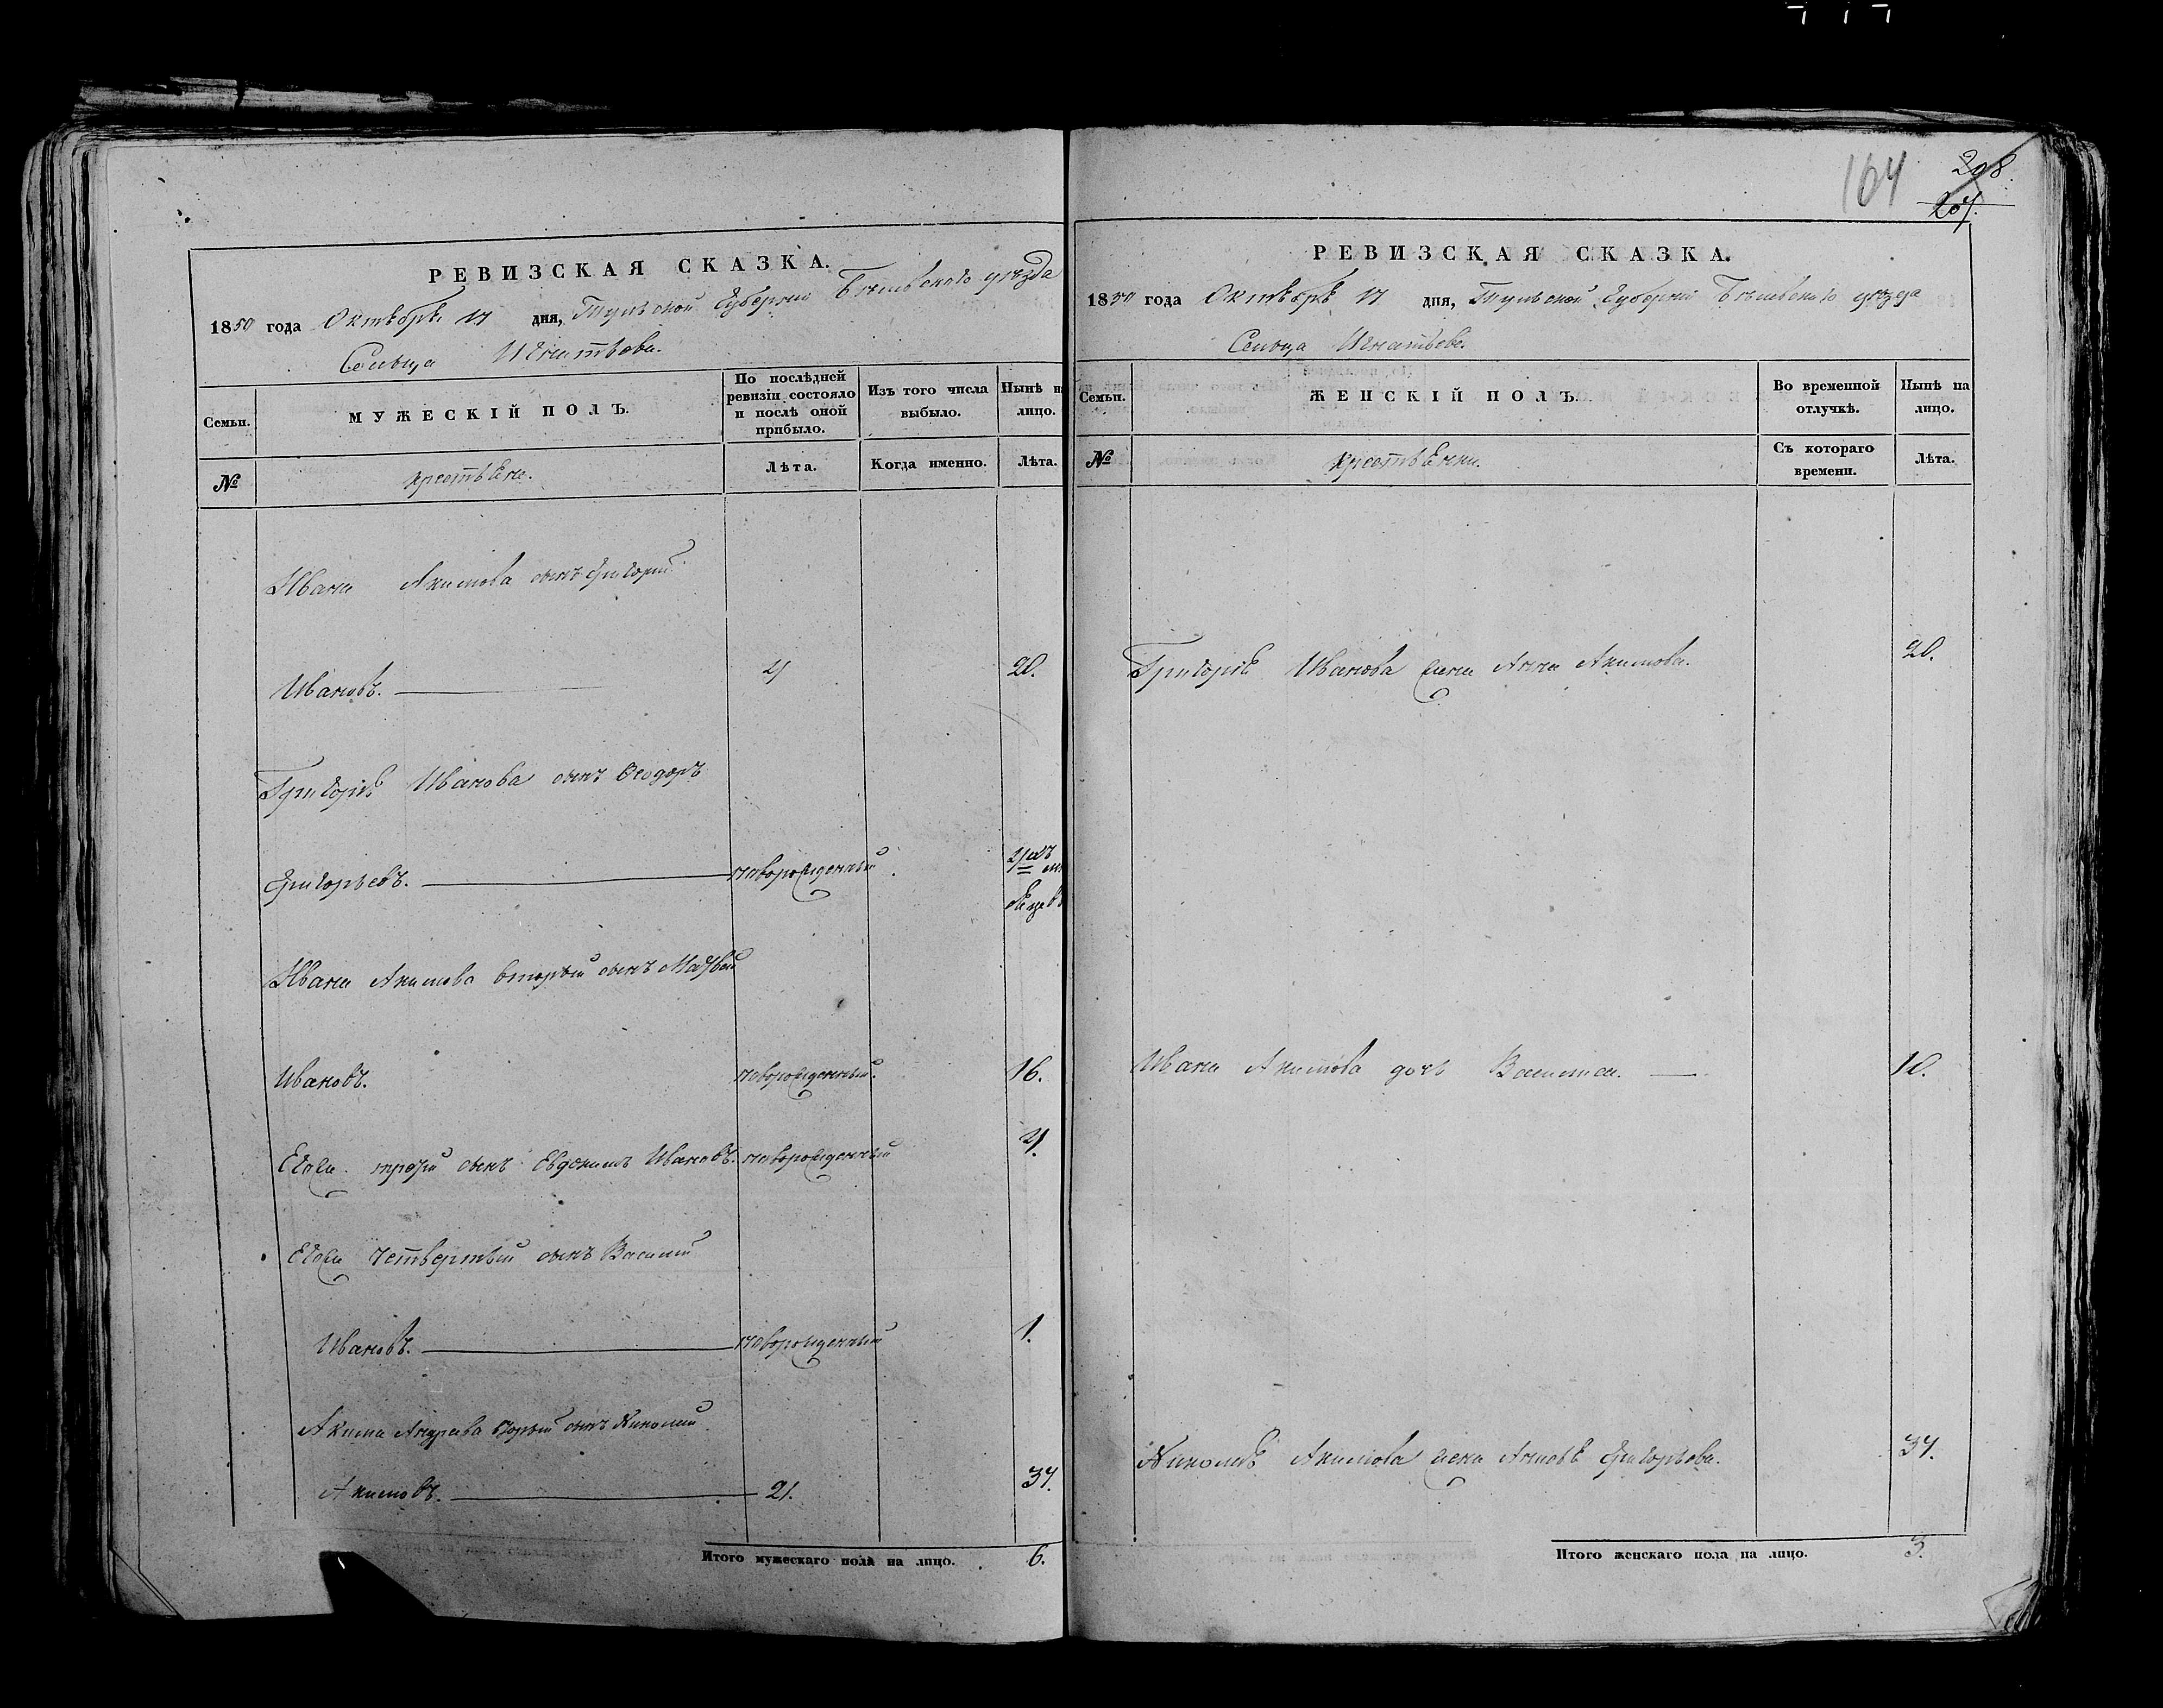 164
208.
207.
РЕВИЗСКАЯ СКАЗКА.
1850 года Октября 17 дня, Тульской Губерніи Бѣлевскаго уѣзда
Сельца Игнатьева.
Семьи.
МУЖЕСКІЙ ПОЛЪ.
По послѣдней ревизіи состояло и послѣ оной прибыло.
Изъ того числа выбыло.
Нынѣ на лицо.
№
Крестьяне.
Лѣта.
Когда именно.
Лѣта.
Ивана Акимова сынъ Григорій
Ивановъ. 4 20.
Григорія Иванова сынъ Ѳеодоръ
Григорьевъ. новорожденный
мѣсяцевъ
Ивана Акимова вторый сынъ Матвей
Ивановъ. новорожденный. 16.
Егоже третій сынъ Евдокимъ Ивановъ. новорожденный 4.
Егоже четвертый сынъ Василій
Ивановъ. новорожденный 1.
Акима Андреева вторый сынъ Николай
Акимовъ. 21. 37.
Итого мужескаго пола на лицо. 6.
РЕВИЗСКАЯ СКАЗКА.
1850 года Октября 17 дня, Тульской Губерніи Бѣлевскаго уѣзда
Сельца Игнатьева.
Семьи.
ЖЕНСКІЙ ПОЛЪ.
Во временной отлучкѣ.
Нынѣ на лицо.
№
Крестьянки.
Съ котораго времени.
Лѣта.
Григорія Иванова жена Анна Акимова. 20.
Ивана Акимова дочь 10.
Николая Акимова жена Григорьева. 37.
Итого женскаго пола на лицо. 3.